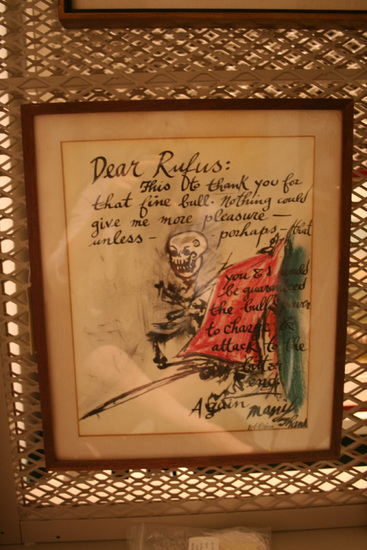 Dear Rufus:
This is to thank you for
that fine bull. Nothing could
give me more pleasure —
unless — perhaps — that
you & I would
be guaranteed
the bull's power
to charge &
attack to the
bitter
end.
Again many
thank